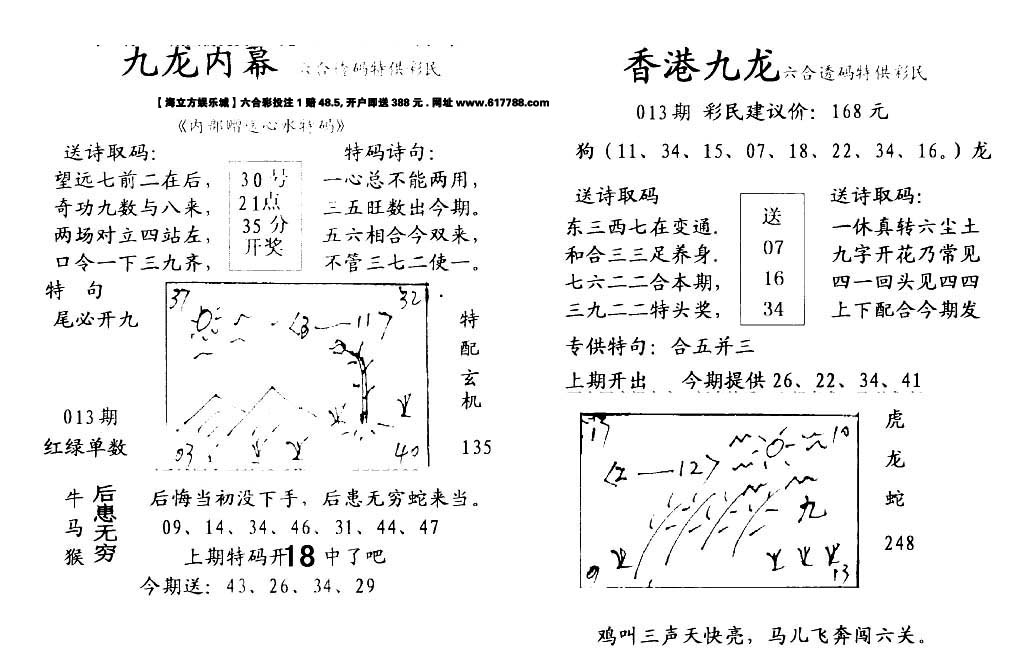 九龙内幕 六合透码特供彩民
【海立方娱乐城】六合彩投注1赔48.5,开户即送388元.网址www.617788.com
《内部赠送心水特码》
送诗取码：
望远七前二在后，
奇功九数与八来，
两场对立四站左，
口令一下三九齐，
30号
21点
35分
开奖
特码诗句：
一心总不能两用，
三五旺数出今期。
五六相合今双来，
不管三七二使一。
特 句
尾必开九
013期
红绿单数
37
32
03
40
特
配
玄
机
135
牛
马
猴
后患无穷
后悔当初没下手，后患无穷蛇来当。
09、14、34、46、31、44、47
上期特码开18中了吧
今期送：43、26、34、29
香港九龙六合透码特供彩民
013期 彩民建议价：168元
狗（11、34、15、07、18、22、34、16。）龙
送诗取码
东三西七在变通.
和合三三足养身.
七六二二合本期，
三九二二特头奖，
送
07
16
34
送诗取码：
一休真转六尘土
九字开花乃常见
四一回头见四四
上下配合今期发
专供特句：合五并三
上期开出 今期提供26、22、34、41
17
10
〈2—12〉
九
9
13
虎
龙
蛇
248
鸡叫三声天快亮，马儿飞奔闯六关。